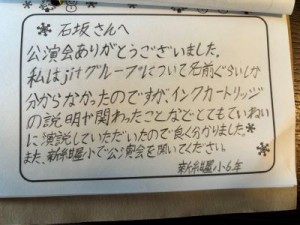 石坂さんへ
公演会ありがとうございました。
私はjitグループについて名前ぐらいしか
分からなかったのですが、インクカートリッジ
の説明が関わったことなどとてもていねい
に演説していただいたので良く分かりました。
また、新紺屋小で公演会を開いてください。
新紺屋小6年